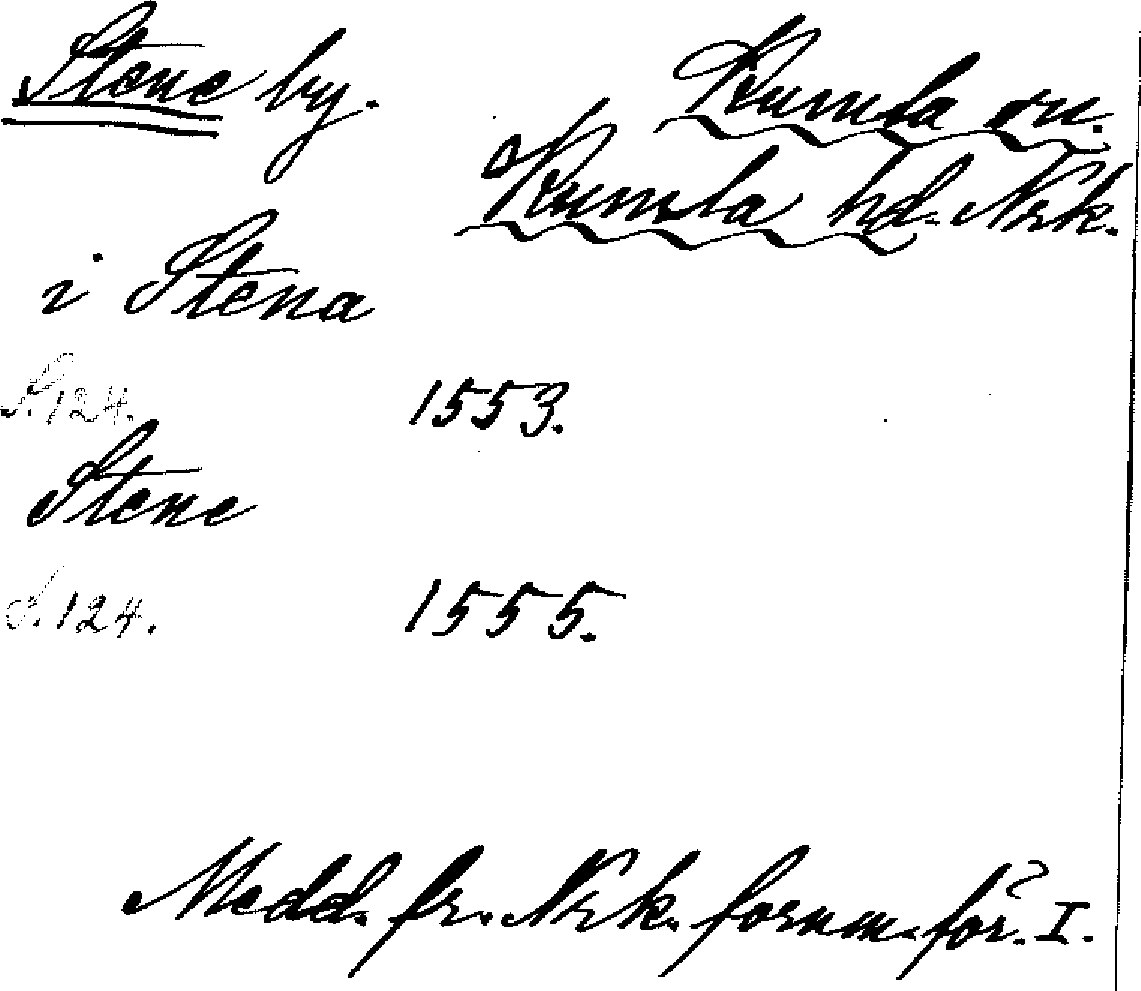 Stene by.
Kumla sn.
Kumla hd. Nrk.
i Stena
S. 124.
1553.
Stene
S. 124.
1555.
Medd. fr. Nrk. fornm. för. I.